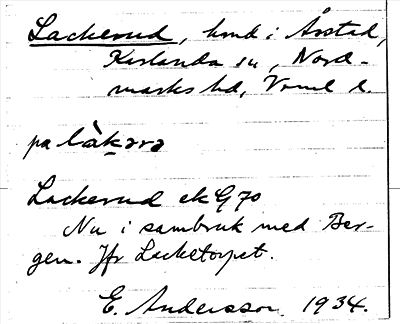 Lackerud, hmd i Årstad,
Karlanda sn, Nord-
marks hd, Vrml l.
pa làkərə
Lackerud ek G 70
Nu i sambruk med Ber-
gen. Jfr Lacketorpet.
E. Andersson 1934.